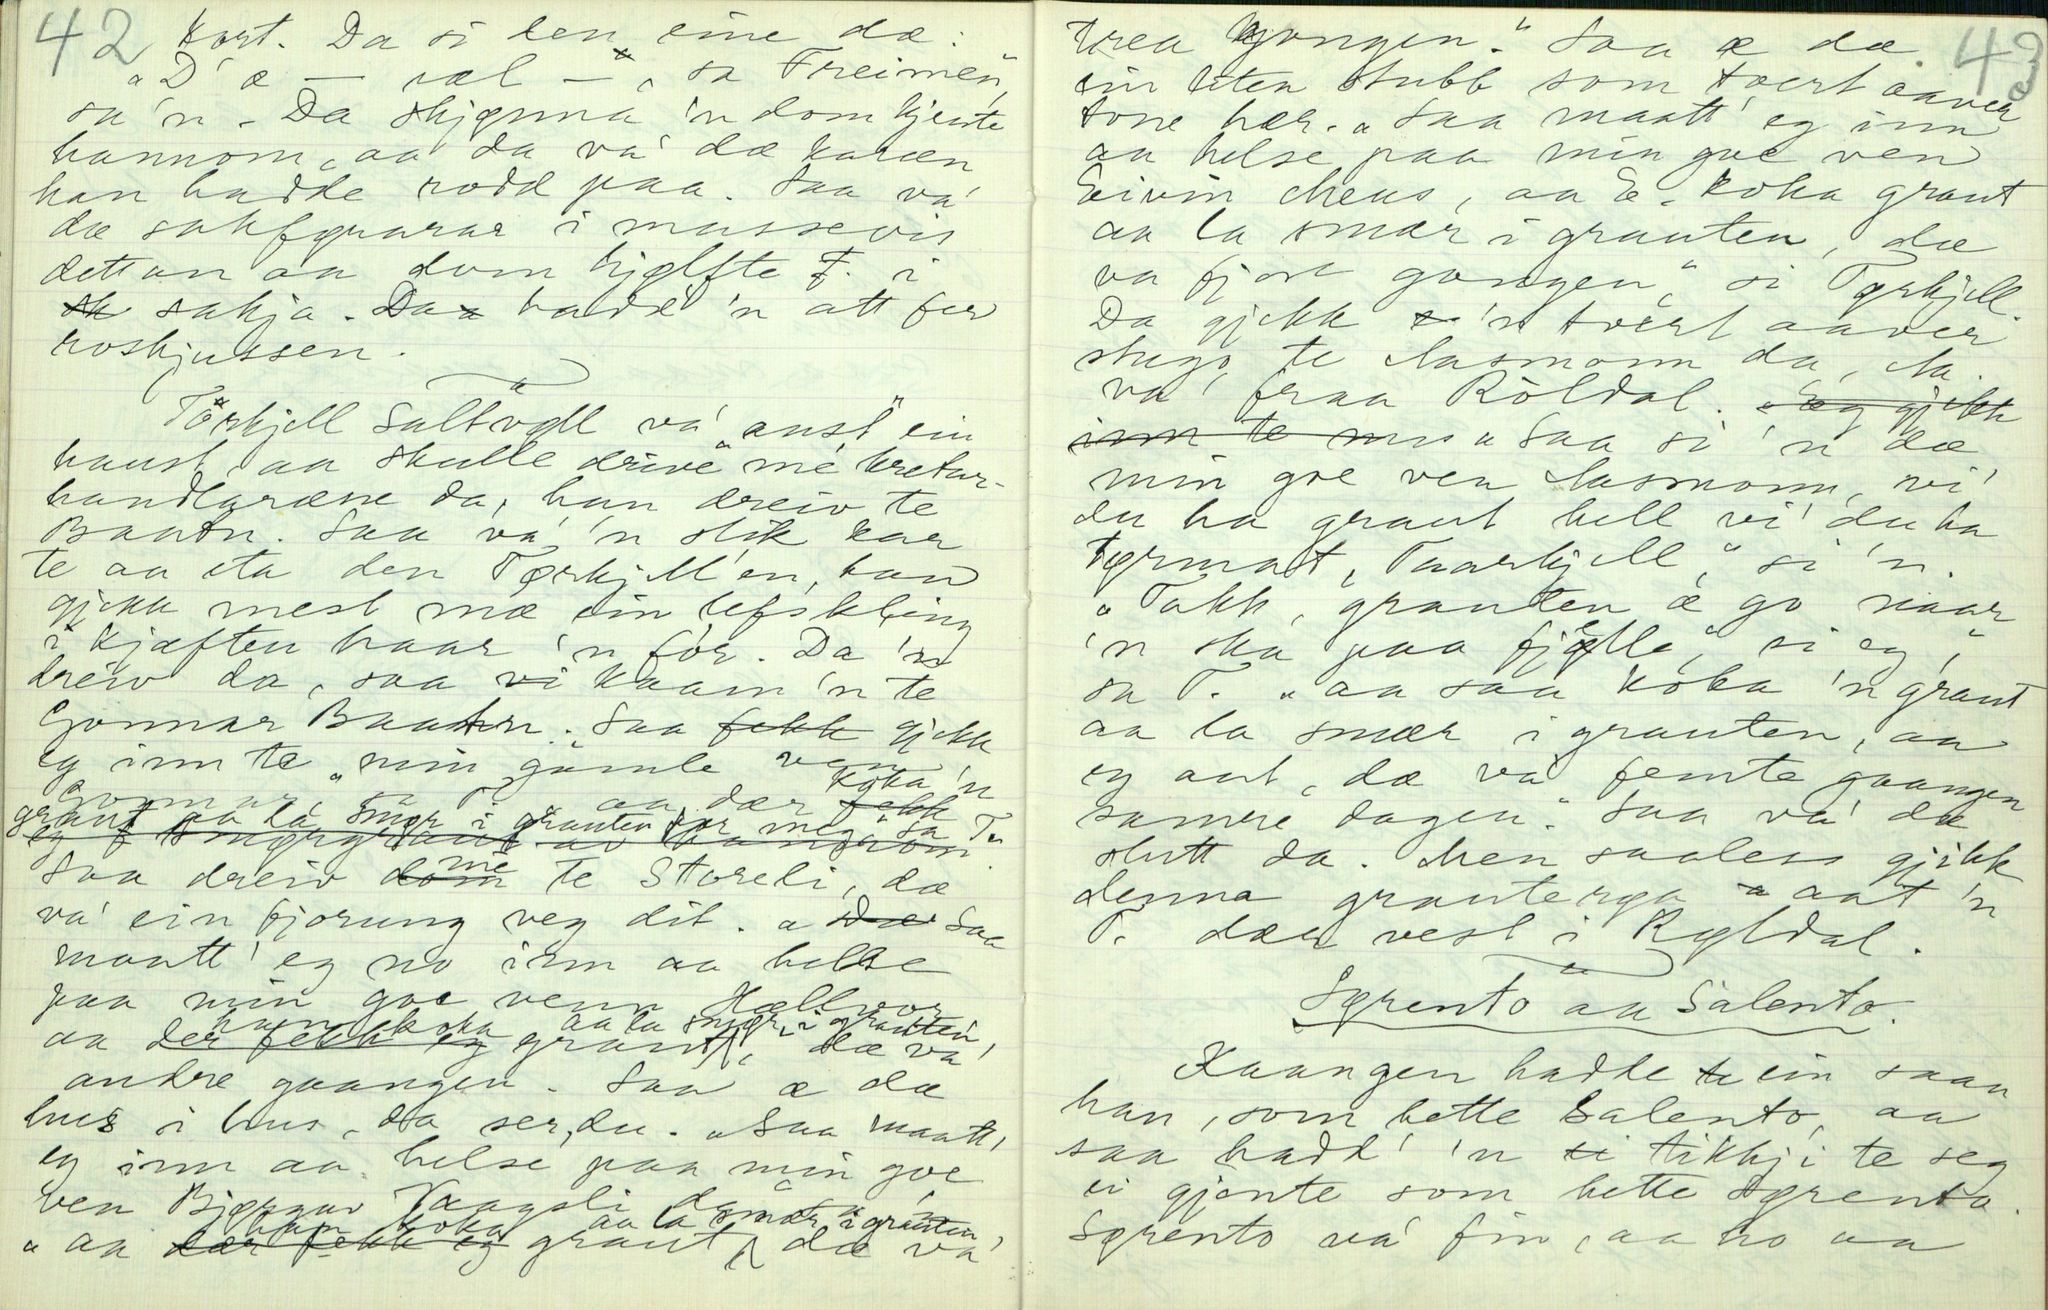 42 kort. Da si den eine dæ:
"D' æ — væl —", sa Freimen",
sa 'n. Da skjønna 'n dom kjente
hannom, aa da va' dæ karæn
han hadde rodd paa. Saa va'
dæ sakførarar i massevis
dettan aa dom hjølfte F. i
sakja. Da hadd' 'n att for
roskjussen.
Törkjell Saltvoll va' aust ein
haust, aa skulle drive me kretur-
handlaræne da, han dreiv te
Baatn. Saa va' 'n slik kar
te aa eta den Tørkjell'en, han
gjekk mest mæ ein lefskling
i kjæften haar 'n for. Da 'n
dreiv da, saa kaam 'n te
Gonnar Baatn. "Saa gjekk
eg inn te min gamle ven
Gonnar, sa T. "aa dær koka 'n
graut aa la smør i grauten for meg" sa T.
Saa dreiv me te Storeli, dæ
va' ein fjorung veg dit. "Saa
maatt' eg no inn aa helse
paa min goe venn Hællvor
aa han koka graut, aa la smør i grauten, dæ va'
andre gaangen. Saa æ dæ
hus i hus, da ser, du. "Saa maatt'
eg inn aa helse paa min goe
ven Bjørguv Vaagsli da, sa 'n
"aa han koka graut aa la smær i grauten, dæ va'
43
trea gongen." Saa æ dæ
ein liten stubb som tvert aaver
tone hær. "Saa maatt' eg inn
aa helse paa min goe ven
Eivin Meus, aa E. koka graut
aa la smær i grauten, dæ
va fjore gongen," si Tørkjell.
Da gjekk 'n tvert aaver
stugo te Aasmonn da, Aa.
va' fraa Röldal.
"Saa si 'n dæ
min goe ven Aasmonn, vi'
du ha graut hell vi' du ha
tørmat, Taarkjell," si 'n.
"Takk, grauten æ go naar
'n ska paa fjelle," si eg,"
sa T. "aa saa koka 'n graut
aa la smær i grauten, aa
eg aat, dæ va' femte gaangen
samre dagen." Saa va' dæ
slutt da. Men saaless gjikk
denna grauterga aat 'n
T. dær vest i Røldal.
Sørento aa Salento.
Kaangen hadde ein saan
han, som hette Salento, aa
saa hadd' 'n tikkji te seg
ei gjente som hette Sørento.
Sørento va' fin, aa ho aa